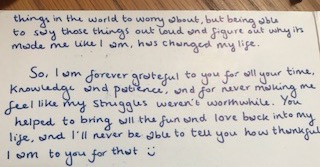 things in the world to worry about, but being able
to say those things out loud and figure out why its
made me like I am, has changed my life.
So, I am forever grateful to you for all your time,
Knowledge and patience, and for never making me
feel like my struggles weren't worthwhile. You
helped to bring all the fun and love back into my
life, and I'll never be able to tell you how thankful
I am to you for that :)